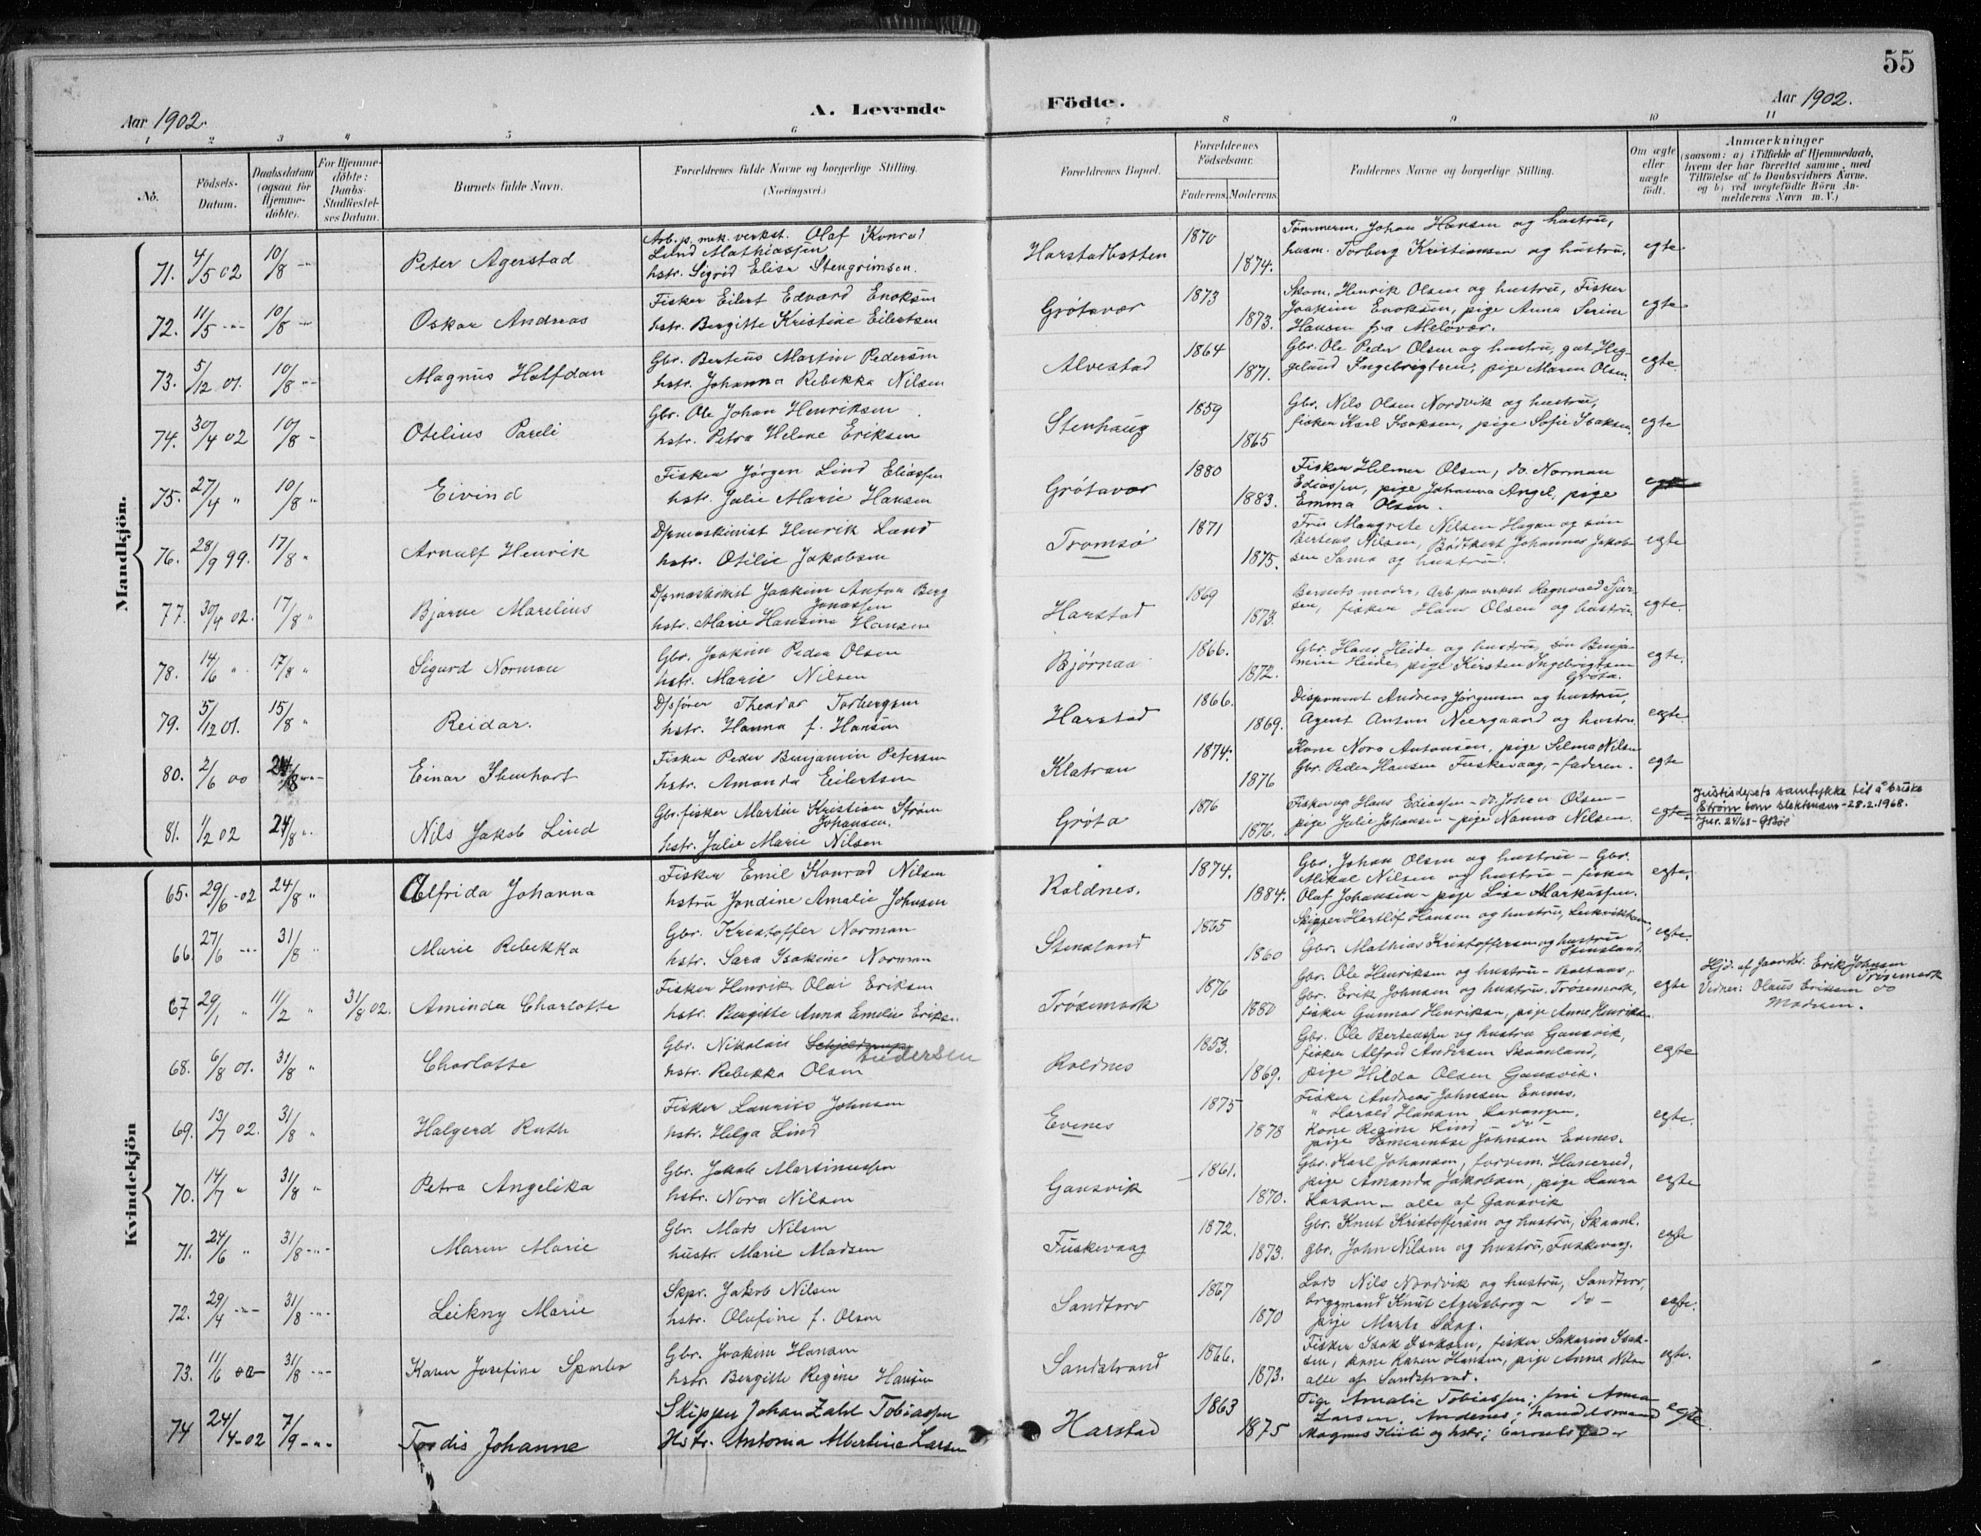 55
Aar 1902.
A. Levende
Födte.
Aar 1902.
1 2 3 4 5 6 7 8 9 10 11
No.
Födsels-
Datum.
Daabsdatum
(ogsaa for
Hjemme-
döbte).
For Hjemme-
döbte:
Daabs-
Stadfæstel-
ses Datum.
Barnets fulde Navn.
Forældrenes fulde Navne og borgerlige Stilling.
(Næringsvei.)
Forældrenes Bopæl.
Forældrenes
Födselsaar.
Faderens. Moderens.
Faddernes Navne og borgerlige Stilling.
Om ægte
eller
uægte
født.
Anmærkninger
(saasom: a) i Tilfælde af Hjemmedaab,
hvem der har forrettet samme, med
Tilföielse af to Daabsvidners Navne,
og b) ved uægtefödte Börn An-
melderens Navn m. V.)
Mandkjön.
71. 4/5 02 10/8 Peter Agerstad
Arb. p. mek. verkst. Olaf Konrad
Lind Mathiassen
hstr. Sigrid Elise Stengrimsen.
Harstadbotten 1870 1874.
Tømmerm. Johan Hansen og hustru,
husm. Torberg Kristiansen og hustru. egte
72. 11/5 10/8 Oskar Andreas
Fisker Eilert Edvard Enoksen
hstr. Bergitte Kristine Eilertsen
Grøtavær 1873 1873.
Skom. Henrik Olsen og hustru, Fisker
Joakim Enoksen, pige Anna Serine
Hansen fra Meløvær. egte
73. 5/12 01. 10/8 Magnus Halfdan
Gbr. Berteus Martin Pedersen
hstr. Johanna Rebekka Nilsen
Alvestad 1864 1871.
Gbr. Ole Peder Olsen og hustru, gat Heg-
geland Ingebrigtsen, pige Maren Olsen. egte.
74. 30/4 02 10/8 Otilius Pareli
Gbr. Ole Johan Henriksen
hstr. Petra Helene Eriksen
Stenhaug 1859 1865
Gbr. Nils Olsen Nordvik og hustru,
fisker Karl Isaksen, pige Sofie Isaksen. egte
75. 27/4 " 10/8 " Eivind
Fisker Jørgen Lind Eliassen
hstr. Julie Marie Hansen
Grøtavær 1880 1883.
Fisker Hilmer Olsen, do. Norman
Ediassen, pige Johanna Angel, pige
Emma Olsen. egte
76. 28/9 99. 17/8 " Arnulf Henrik
D/pmaskinist Henrik Lund
hstr. Otilie Jakobsen
Tromsø 1871 1875.
Fru Margrete Nilsen Hagan og søn
Berteus Nilsen, Johannes Jakob-
sen Sama og hustru. egte
77. 30/4 02. 17/8 " Bjarne Marelius
D/pmaskinist Joakim Anton Berg
Jonassen
hstr. Marie Hansine Hansen
Harstad 1869 1873.
Barnets moder, Arb. paa verkst Ragnvald
sen, fisker Hans Olsen og hustru. egte.
78. 14/6 " 17/8 " Sigurd Norman
Gbr. Joakim Peder Olsen
hstr. Marie Nilsen
Bjørnaa 1866. 1872.
Gbr. Hans Heide og hustru, søn Benja-
min Heide, pige Kirsten Ingebrigtsen
Grøta. egte.
79. 5/12 01. 15/8 " Reidar.
D/pfører Theodor Torbergsen
hstr. Hanna f. Hansen
Harstad 1866. 1869.
Disponent Andreas Jørgensen og hustru,
Agent Anton Neergaard og hustru egte.
80. 2/6 00 24/8 Einar Ibenhart
Fisker Peder Benjamin Petersen
hstr. Amanda Eilertsen
Klatran 1874. 1876
Kone Nora Antonsen, pige Selma Nilsen
Gbr. Peder Hansen Fuskevaag, - faderen. egte
81. 1/2 02 24/8 " Nils Jakob Lind
Gbr. fisker Martin Kristian Strøm
Johansen.
hstr. Julie Marie Nilsen
Grøta 1876 1876.
Fisker og Hans Ediassen - do. Johan Olsen -
pige Julie Johansen - pige Nanna Nilsen. egte
Justisdepets samtykke til å bruke
Strøm som slektsnavn - 28.2.1968.
Jnr. 24/68 - GBöe
Kvindekjön
65. 29/6 -02 24/8 " Alfrida Johanna
Fisker Emil Konrad Nilsen
hstru Jondine Amalie Johnsen
Roldnes. 1874. 1884.
Gbr. Johan Olsen og hustru - Gbr.
Mikal Nilsen og hustru - fisker
Olaf Johansen - pige Lise Markussen. egte.
66. 27/6 31/8 " Marie Rebekka
Gbr. Kristoffer Norman
hstr. Sara Isakine Norman
Stensland 1865 1860
Skipper Hartlöf Hansen og hustru,
Gbr. Mathias Kristoffersen og hustru
Stensland. egte.
67 29/1 " 11/2 " 31/8 02. Aminda Charlotte
Fisker Henrik Olai Eriksen
hstr. Bergitte Anna Emelie Eriks.
Trøsemark 1876 1880
Gbr. Ole Henriksen og hustru -
Gbr. Erik Johnsen og hustru. Trøsemark,
fisker Gunnar Henriksen, pige Anne Henriksen. egte
Hjd. af Jaardbr. Erik Johnsen
Trøsemark
Vidner: Olaus Eriksen do
Madsen.
68. 6/8 01. 31/8 " Charlotte
Gbr. Nikolai Schjelderup Andersen
hstr. Rebekka Olsen
Roldnes 1853. 1869.
Gbr. Ole Berteussen og hustru Gansvik,
fisker Alfred Andersen Skaanland,
pige Hilda Olsen Gansvik. egte
69. 13/7 02. 31/8 " Halgerd Ruth
Fisker Laurits Johnsen
hstr. Helga Lind
Evenes 1875 1878
Fisker Andreas Johnsen Evenes.
" Harald Hansen Lavangen.
Kone Regine Lind - do -
pige Johnsen Evenes. egte.
70. 14/7 " 31/8 " Petra Angelika
Gbr. Jakob Martinussen
hstr. Nora Nilsen
Gansvik 1861. 1870.
Gbr. Karl Johansen, forvm. Hanerud,
pige Amanda Jakobsen, pige Laura
Larsen - alle af Gansvik egte
71. 24/6 " 31/8 Maren Marie
Gbr. Mats Nilsen
hustr. Marie Madsen
Fuskevaag 1872. 1873.
Gbr. Knut Kristoffersen og hustru, Skaanl.
gbr. John Nilsen og hustru, Fuskevaag. egte
72. 29/4 31/8 Leikny Marie
Skpr. Jakob Nilsen
hstr. Olufine f. Olsen
Sandtorv 1867 1870
Lods Nils Nordvik og hustru, Sandtorv,
bryggmand Knut Agersborg - do -
pige Marta Skog. egte.
73. 11/6 00 31/8 Karen Josefine Sparbo
Gbr. Joakim Hansen
hstr. Bergitte Regine Hansen
Sandstrand 1866. 1873.
Fisker Isak Isaksen, fisker Sakarias Isak-
sen, kone Karen Hansen, pige Anna Nilsen
alle af Sandstrand. egte.
74 24/4 -02 7/9 Tordis Johanne
Skipper Johan Zahl Tobiassen
Hstr. Antona Albertine Larsen
Harstad 1863 1875
Pige Amalie Tobiassen; fru Anna
Larsen, Andenes; handelsmand
Magnus Kiili og hstr; barnets fader egte.